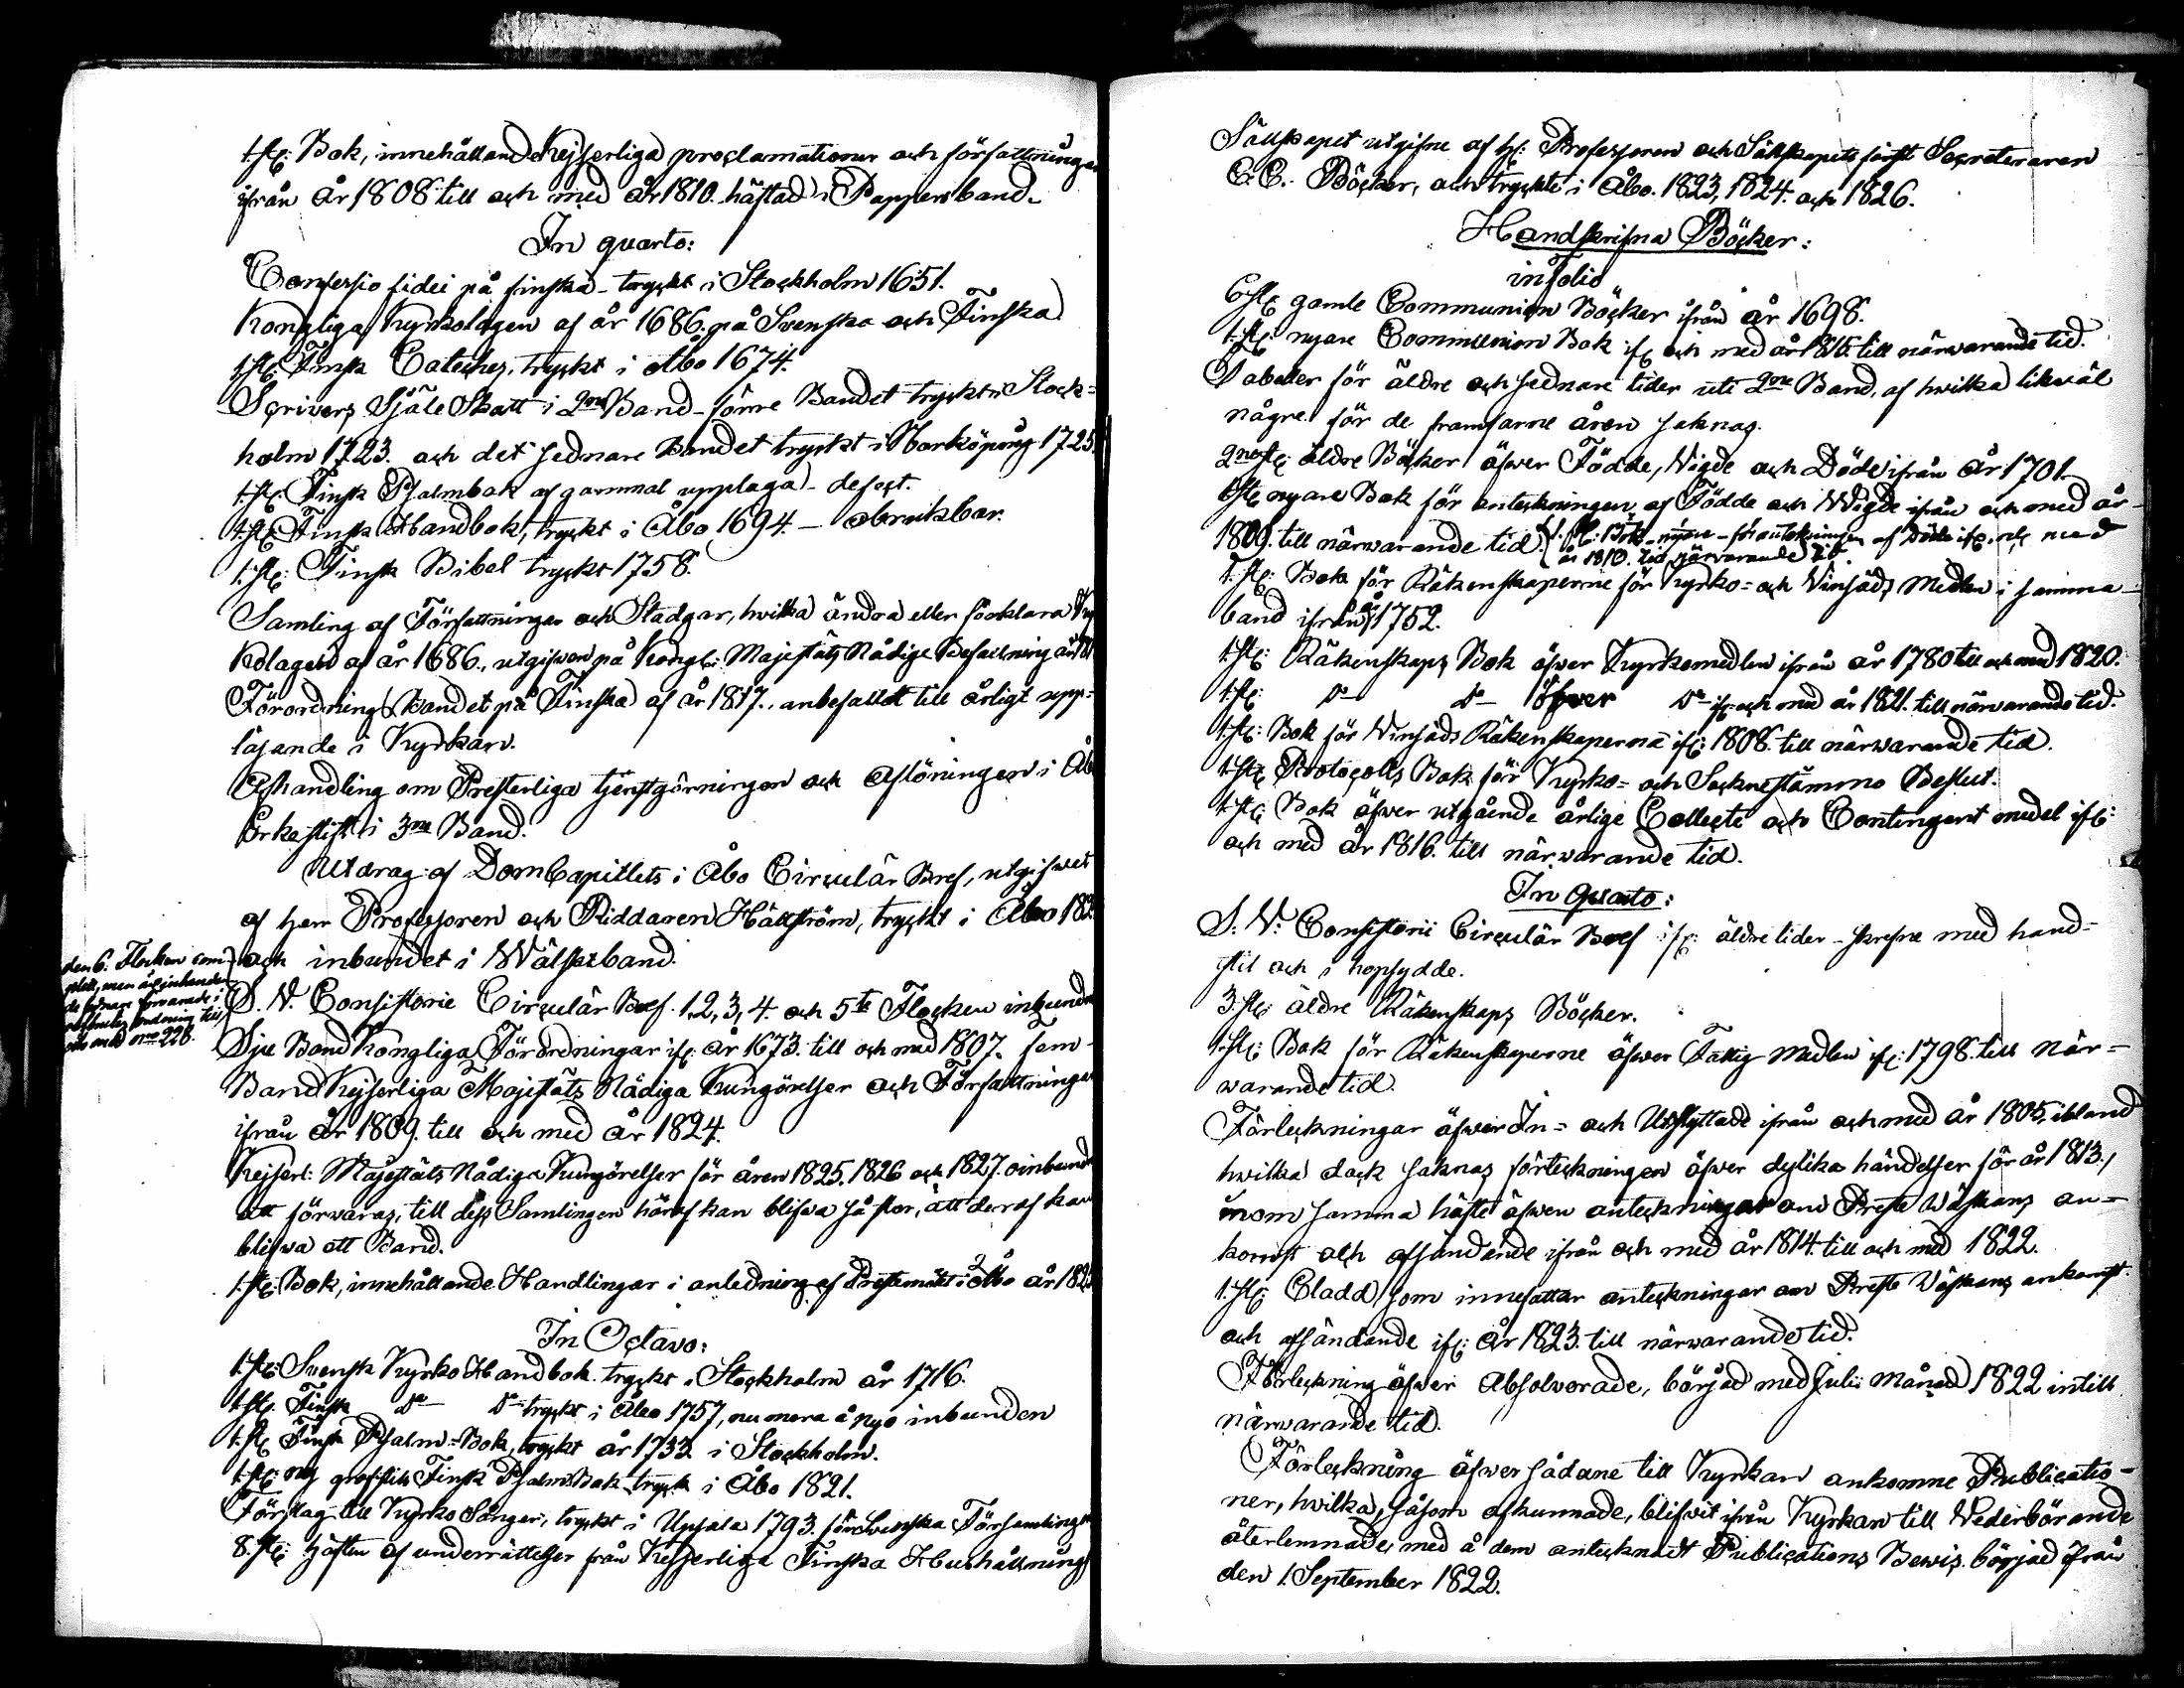 1. st: Bok, innehållande Kejserliga proclamationer och författningar
ifrån År 1808 till och med År 1810. häftad i Pappersband.
In quarto:
Confessio fidei på finska - tryckt i Stockholm 1651.
Kongliga Kyrkolagen af år 1686. på Svenska och Finska
1. st. Finsk Cateches, tryckt i Åbo 1674.
Scrivers Själe Skatt i 2ne Band - förre Bandet tryckt i Stock=
holm 1723. och det sednare Bandet tryckt i Norköping 1725.
1. st. Finsk Psalmbok af gammal upplaga - defect.
1. st. Finsk Handbok, tryckt i Åbo 1694. - obrukbar.
1. st: Finsk Bibel tryckt 1758.
Samling af Författningar och Stadgar, hvilka ändra eller förklara
Kolagen af år 1686., utgifven på Kongl: Majestäts Nådige Befallning
Förordnings Bandet på Finska af år 1817., anbefalldt till årligt upp=
läsande i Kyrkan.
Afhandling om Presterliga tjenstgörningen och Aflöningen i
Erkestift i 3ne Band.
Utdrag af DomCapitlets i Åbo Circulär Bref, utgifwet
af herr Professoren och Riddaren Hällström, tryckt i Åbo
och inbundet i Wälsktband.
den 6. Flocken com-
plett, men
N:o 228.
S. V. Consistorie Circulär Bref. 1, 2, 3, 4. och 5te Flocken
Sju Band Kongliga Förordningar ifr: år 1673. till och med 1807. Fem
Band Kejserliga Majestäts Nådiga Kungörelser och Författningar
ifrån år 1809. till och med år 1824.
Kejserl: Majestäts Nådiga Kungörelser för åren 1825. 1826 och 1827. oinbund
att förwaras, till dess Samlingen häraf kan blifwa så stor, att deraf kan
blifwa ett Band.
1. st: Bok, innehållande Handlingar i anledning af Prestmötet i Åbo år
In Octavo:
1. st: Svensk Kyrko Handbok tryckt i Stockholm år 1716.
1. st. Finsk Do Do tryckt i Åbo 1757, nu mera å nyo inbunden
1. st. Finsk Psalm=Bok, tryckt år 1733. i Stockholm.
1. st: ny grofstils Finsk Psalm Bok tryckt i Åbo 1821.
Förslag till Kyrko Sånger, tryckt i Upsala 1793. för Svenska Församlingen
8. st: häften af underrättelser från Kejserliga Finska Hushållnings
Sällskapet utgifne af hr: Professoren och Sällskapets förste Secreteraren
C. C. Böcker, och tryckte i Åbo. 1823, 1824. och 1826.
Handskrifna Böcker:
in Folio
6. st: gamle Communion Böcker ifrån år 1698.
1. st. nyare Communion Bok ifr: och med år 1815. till närwarande tid.
Tabeller för äldre och sednare tider uti 2ne Band, af hwilka likwäl
några för de framfarne åren saknas.
2ne st: äldre Böcker öfwer Födde, Vigde och Döde ifrån År 1701.
1. st: nyare Bok för anteckningen af Födde och Wigde ifrån och med år
1809. till närwarande tid. 1. st: Bok - nyare - för anteckningen af Döde ifr. och med
år 1810. till närvarande tid.
1. st: Bok för Räkenskaperne för Kyrko= och Vinsäds Medlen i samma
band ifrån år 1752.
1. st: Räkenskaps Bok öfwer Kyrkomedlen ifrån år 1780 till och med 1820.
1. st: Do Do öfwer Do ifr: och med år 1821. till närwarande tid.
1. st: Bok för Winsäds Räkenskaperna ifr: 1808. till närwarande tid.
1. st: Protocolls Bok för Kyrko= och Socknestämmo Beslut.
1. st: Bok öfver utgående årlige Collecte och Contingent medel ifr:
och med år 1816. till närwarande tid.
In Quarto:
S. V. Consistorii Circulär Bref ifr: äldre tider - skrefne med hand=
stil och i hopsydde.
3. st: äldre Räkenskaps Böcker.
1. st: Bok för Räkenskaperne öfwer Fattig medlen ifr: 1798. till när=
warande tid.
Förteckningar öfwer In= och Utflyttade ifrån och med år 1805, ibland
hwilka dock saknas förteckningen öfwer dylika händelser för år 1813.,
inom samma häfte äfwen anteckningar om Preste Wäskans an=
komst och afsändande ifrån och med år 1814. till och med 1822.
1. st: Cladd som innefattar anteckningar om Preste Väskans ankomst
och afsändande ifr: År 1823. till närwarande tid.
Förteckning öfwer Absolverade, börjad med Julii Månad 1822 intill
närwarande tid.
Förteckning öfwer sådane till Kyrkan ankomne Publicatio=
ner, hvilka, såsom afkunnade, blifvit ifrån Kyrkan till Vederbörande
återlemnade, med å dem antecknadt Publications Bewis. börjad ifrån
den 1. September 1822.